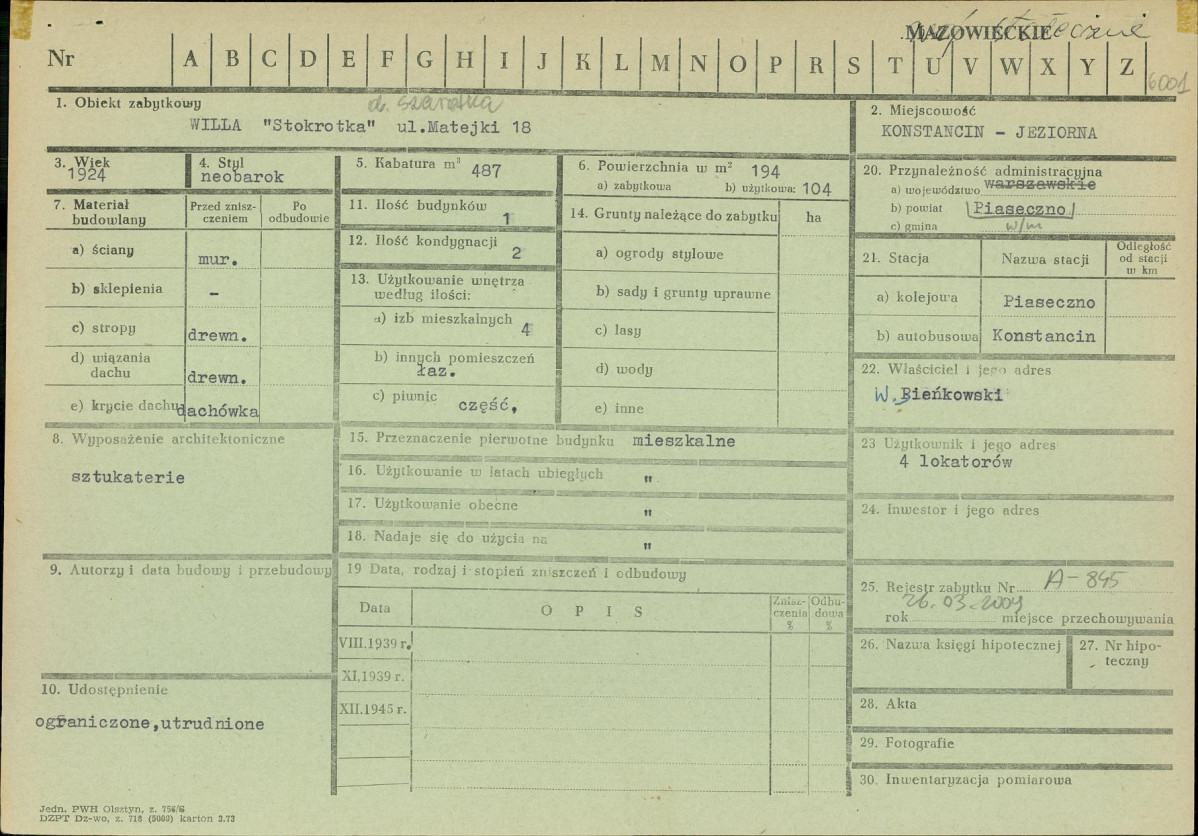 MAZOWIECKIE
woj. stołecznie
Nr A B C D E F G H I J K L M N O P R S T U V W X Y Z
6001
1. Obiekt zabytkowy
d. Szarotka
WILLA "Stokrotka" ul.Matejki 18
2. Miejscowość
KONSTANCIN - JEZIORNA
3. Wiek
1924
4. Styl
neobarok
5. Kabatura m³ 487
6. Powierzchnia w m² 194
a) zabytkowa b) użytkowa: 104
7. Materiał budowlany
Przed znisz-
czeniem
Po
odbudowie
a) ściany mur.
b) sklepienia -
c) stropy drewn.
d) wiązania
dachu drewn.
e) krycie dachu dachówka
8. Wyposażenie architektoniczne
sztukaterie
9. Autorzy i data budowy i przebudowy
10. Udostępnienie
ograniczone,utrudnione
11. Ilość budynków 1
12. Ilość kondygnacji
2
13. Użytkowanie wnętrza
według ilości:
a) izb mieszkalnych
4
b) innych pomieszczeń
łaz.
c) piwnic część,
14. Grunty należące do zabytku ha
a) ogrody stylowe
b) sady i grunty uprawne
c) lasy
d) wody
e) inne
15. Przeznaczenie pierwotne budynku mieszkalne
16. Użytkowanie w latach ubiegłych "
17. Użytkowanie obecne "
18. Nadaje się do użycia na "
19 Data, rodzaj i stopień zniszczeń i odbudowy
Data
OPIS
Znisz-
czenia
%
Odbu-
dowa
%
VIII.1939 r.
XI,1939 r.
XII.1945 r.
20. Przynależność administracyjna
a) województwo warszawskie
b) powiat Piaseczno
c) gmina w/m
21. Stacja Nazwa stacji
Odległość
od stacji
w km
a) kolejowa Piaseczno
b) autobusowa Konstancin
22. Właściciel i jego adres
W. Bieńkowski
23 Użytkownik i jego adres
4 lokatorów
24. Inwestor i jego adres
25. Rejestr zabytku Nr.... A-845
26.03.2004
rok miejsce przechowywania
26. Nazwa księgi hipotecznej
27. Nr hipo-
teczny
28. Akta
29. Fotografie
30. Inwentaryzacja pomiarowa
Jedn. PWH Olsztyn, z. 756/S
DZPT Dz-wo, z. 718 (5000) karton 3.73